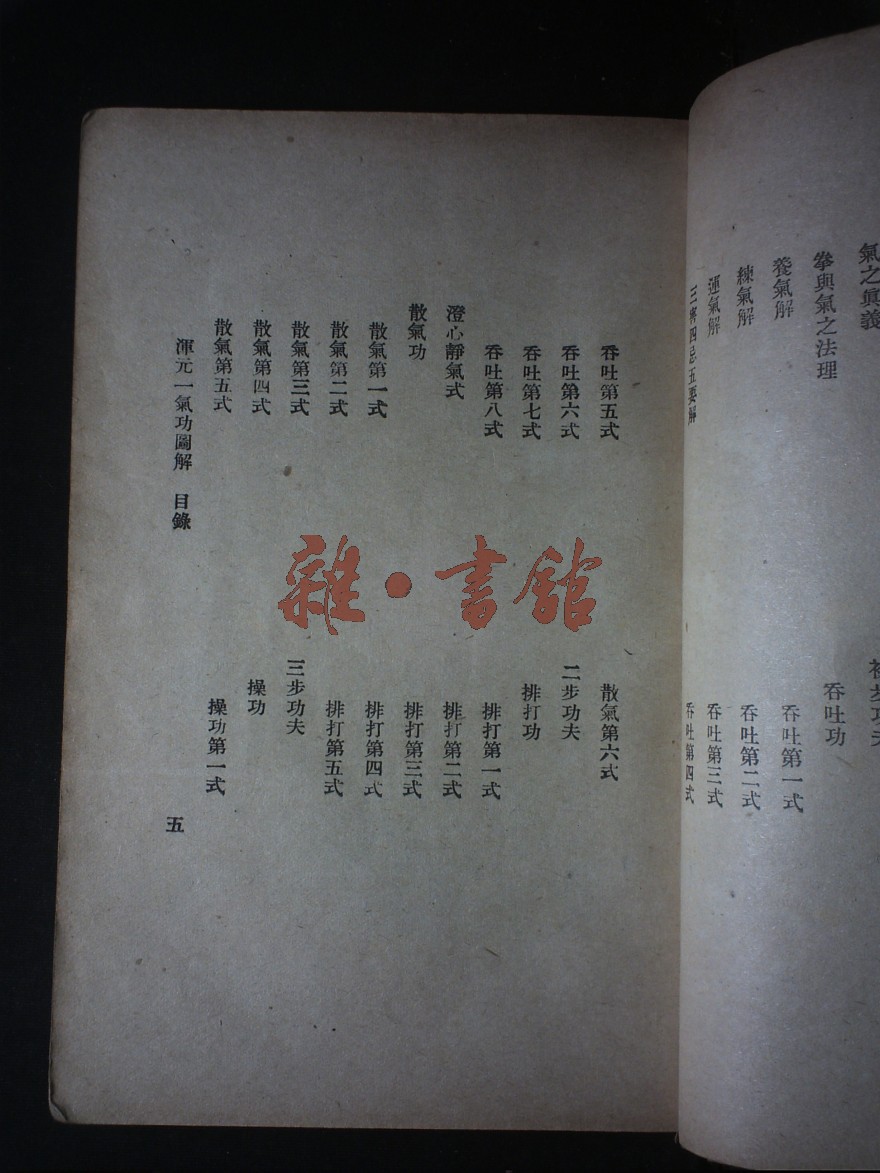 氣之眞義
拳與氣之法理
養氣解
練氣解
運氣解
初步功夫
吞吐功
吞吐第一式
吞吐第二式
吞吐第三式
吞吐第四式
吞吐第五式
吞吐第六式
吞吐第七式
吞吐第八式
澄心靜氣式
散氣功
散氣第一式
散氣第二式
散氣第三式
散氣第四式
散氣第五式
散氣第六式
二步功夫
排打功
排打第一式
排打第二式
排打第三式
排打第四式
排打第五式
三步功夫
操功
操功第一式
渾元一氣功圖解 目錄
五
雜·書館